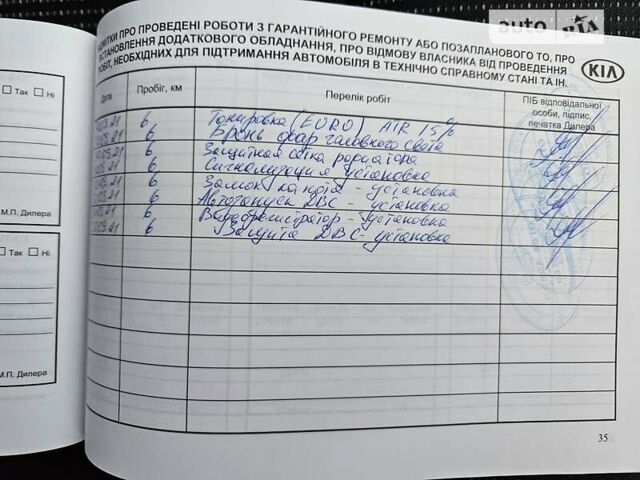 auto RIA
МІТКИ ПРО ПРОВЕДЕНІ РОБОТИ З ГАРАНТІЙНОГО РЕМОНТУ АБО ПОЗАПЛАНОВОГО ТО, ПРО
ВСТАНОВЛЕННЯ ДОДАТКОВОГО ОБЛАДНАННЯ, ПРО ВІДМОВУ ВЛАСНИКА ВІД ПРОВЕДЕННЯ
РОБІТ, НЕОБХІДНИХ ДЛЯ ПІДТРИМАННЯ АВТОМОБІЛЯ В ТЕХНІЧНО СПРАВНОМУ СТАНІ ТА ІН.
KIA
Дата Пробіг, км Перелік робіт ПІБ відповідальної
особи, підпис,
печатка Дилера
6 Тонировка (EURO) AIR 15%
6 Бронь фар головного света
6 Защитная сетка радиатора
6 Сигнализация установка
6 Замок на кпп - установка
6 Автозапуск ДВС - установка
6 Видеорегистратор - установка
6 Защита ДВС - установка
35
Так Ні
М.П. Дилера
Так Ні
М.П. Дилера